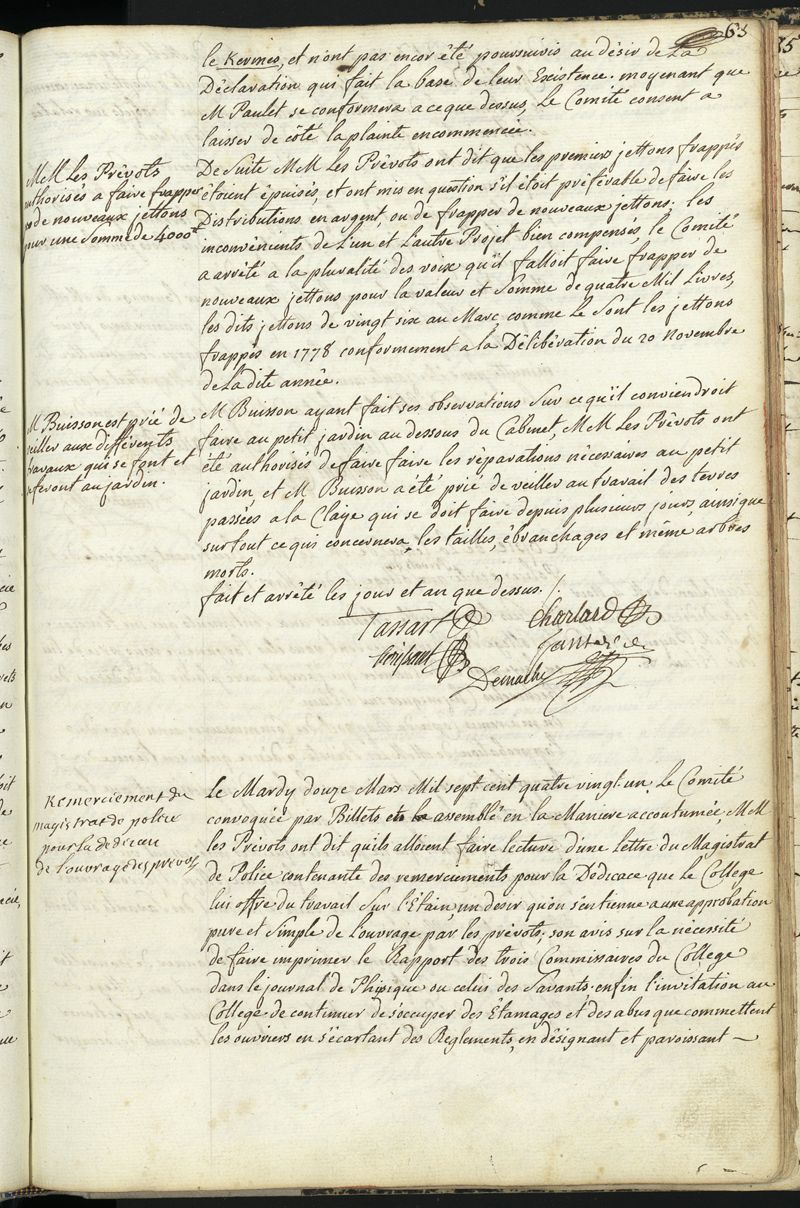 63
le Kermes, et n'ont pas encor été poursuivis au désir de La
Déclaration qui fait la base de leur Existence. moyenant que
M Paulet se conformera a ce que dessus, Le Comité consent a
laisser de côté la plainte encommencée.
MM Les Prévots
authorisés a faire frapper
de nouveaux jettons
pour une Somme de 4000 tt
De Suite MM Les Prévots ont dit que les premiers jettons frappés
étoient épuisés, et ont mis en question s'il étoit préférable de faire les
Distributions en argent, ou de frapper de nouveaux jettons. les
inconvénients de L'un et L'autre Projet bien compensés, le Comité
a arrêté a la pluralité des voix qu'il falloit faire frapper de
nouveaux jettons pour la valeur et Somme de quatre Mil Livres,
les dits jettons de vingt six au Marc comme Le Sont les jettons
frappés en 1778 conformement a la Délibération du 20 Novembre
de La dite année.
M Buisson est prié de
veiller aux différents
travaux qui se font et
se feront au jardin.
M Buisson ayant fait ses observations Sur ce qu'il conviendroit
faire au petit jardin au dessous du Cabinet, MM Les Prévots ont
été authorisés de faire faire les réparations nécessaires au petit
jardin, et M Buisson a été prié de veiller au travail des terres
passées a la Claye qui se doit faire depuis plusieurs jours, ainsi que
surtout ce qui concernera les tailles, ébranchages et même arbres
morts.
fait et arrêté les jour et an que dessus./.
Tassart Charlard
Demachy
Remerciement du
magistrat de police
pour la dédicace
de l'ouvrage des prévots
Le Mardy douze Mars Mil sept cent quatre vingt un, Le Comité
convoquée par Billets et assemblé en la Maniere accoutumée, MM
les Prévots ont dit quils alloient faire lecture d'une Lettre du Magistrat
de Police contenante des remerciments pour la Dédicace que Le College
lui offre du travail Sur l'Etain, un désir qu'on s'en tienne a une approbation
pure et Simple de L'ouvrage par les prévots, son avis sur la nécessité
de faire imprimer le Rapport des trois Commissaires du College
dans le journal de Phisique ou celui des Savants. enfin l'invitation au
College de continuer de s'occuper des Étamages et des abus que commettent
les ouvriers en s'écartant des Reglements, en désignant et paroissant —